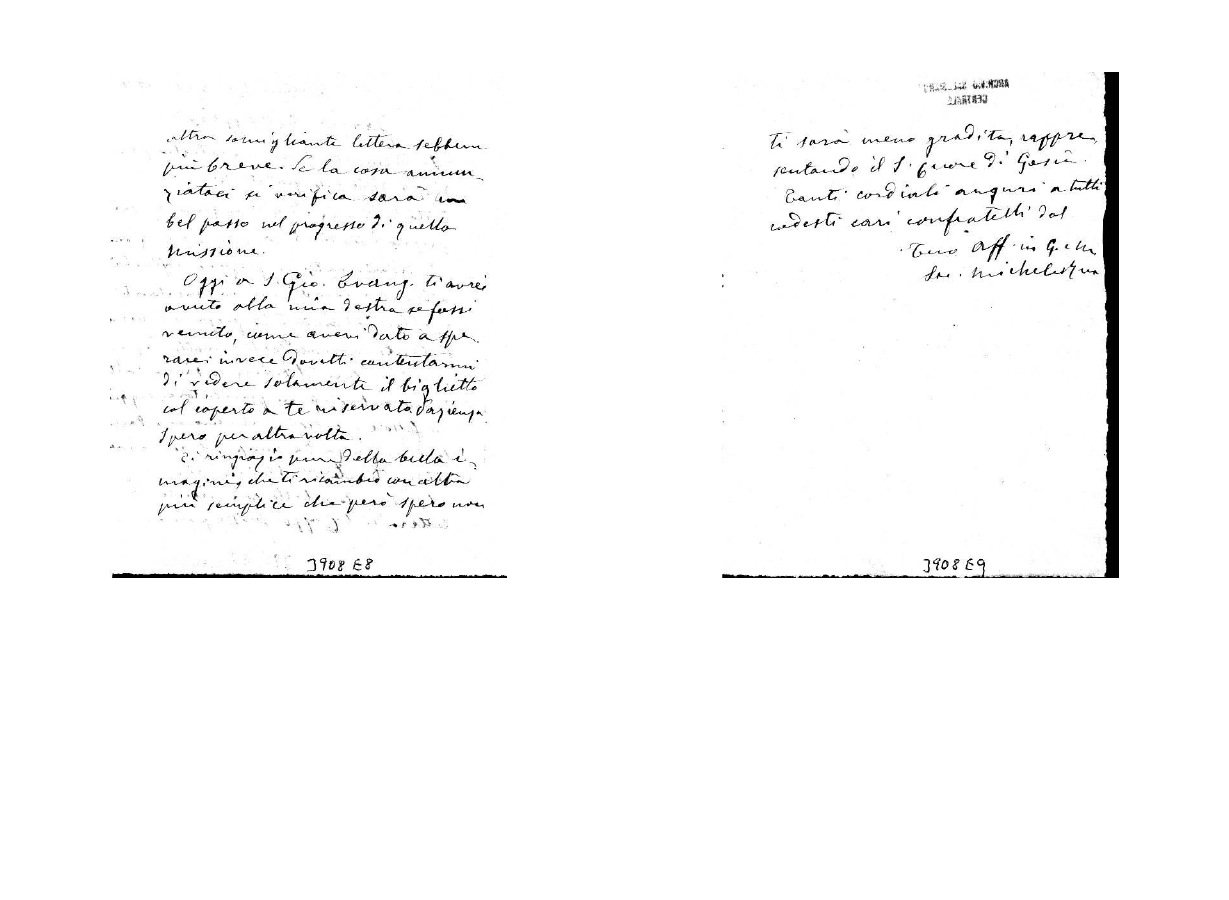 altra somigliante lettera sebbene
più breve. Se la cosa annun-
ziataci si verifica sarà un
bel passo nel progresso di quella
missione.
Oggi a S. Gio. Evang. ti avrei
avuto alla mia destra se fossi
venuto, come avevi dato a spe-
rare; invece dovetti contentarmi
di vedere solamente il biglietto
col coperto a te riservato. Pazienza
spero per altra volta.
Ti ringrazio pure della bella i-
magine, che ti ricambio con altra
più semplice che però spero non
3908 E8
ARCHIVIO SAL.
CENTRALE
ti sarà meno gradita, rappre-
sentando il S. Cuore di Gesù.
Tanti cordiali auguri a tutti
codesti cari confratelli dal
Tuo Aff. in G. e M.
Sac. Michele Rua
3908 E9